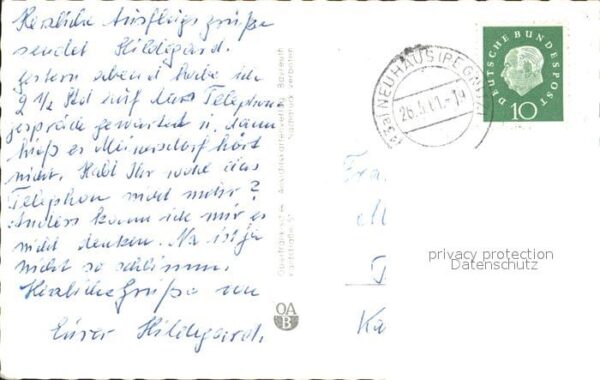 Herzliche Ausflugsgrüße
sendet Hildegard.
gestern abend habe ich
2 1/2 Std auf das Telephon
gespräch gewartet u. dann
hieß es hört
nicht. Habt Ihr wohl das
Telephon nicht mehr?
Anders kann ich mir es
nicht denken. Na ist ja
nicht so schlimm.
Herzliche Grüße von
Eurer Hildegard.
Oberfränkischer Ansichtskartenverlag Bayreuth
Nachdruck verboten
OA
B
NEUHAUS (PEGNITZ)
26.5.61.-1
DEUTSCHE BUNDESPOST
10
Fra
M
Ka
privacy protection
Datenschutz